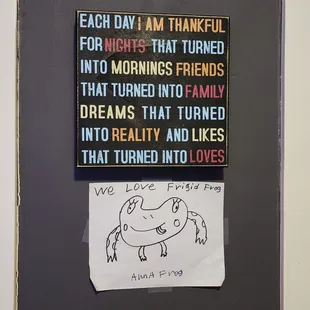 EACH DAY I AM THANKFUL
FOR NIGHTS THAT TURNED
INTO MORNINGS FRIENDS
THAT TURNED INTO FAMILY
DREAMS THAT TURNED
INTO REALITY AND LIKES
THAT TURNED INTO LOVES
We Love Frigid Frog
AnnA Frog